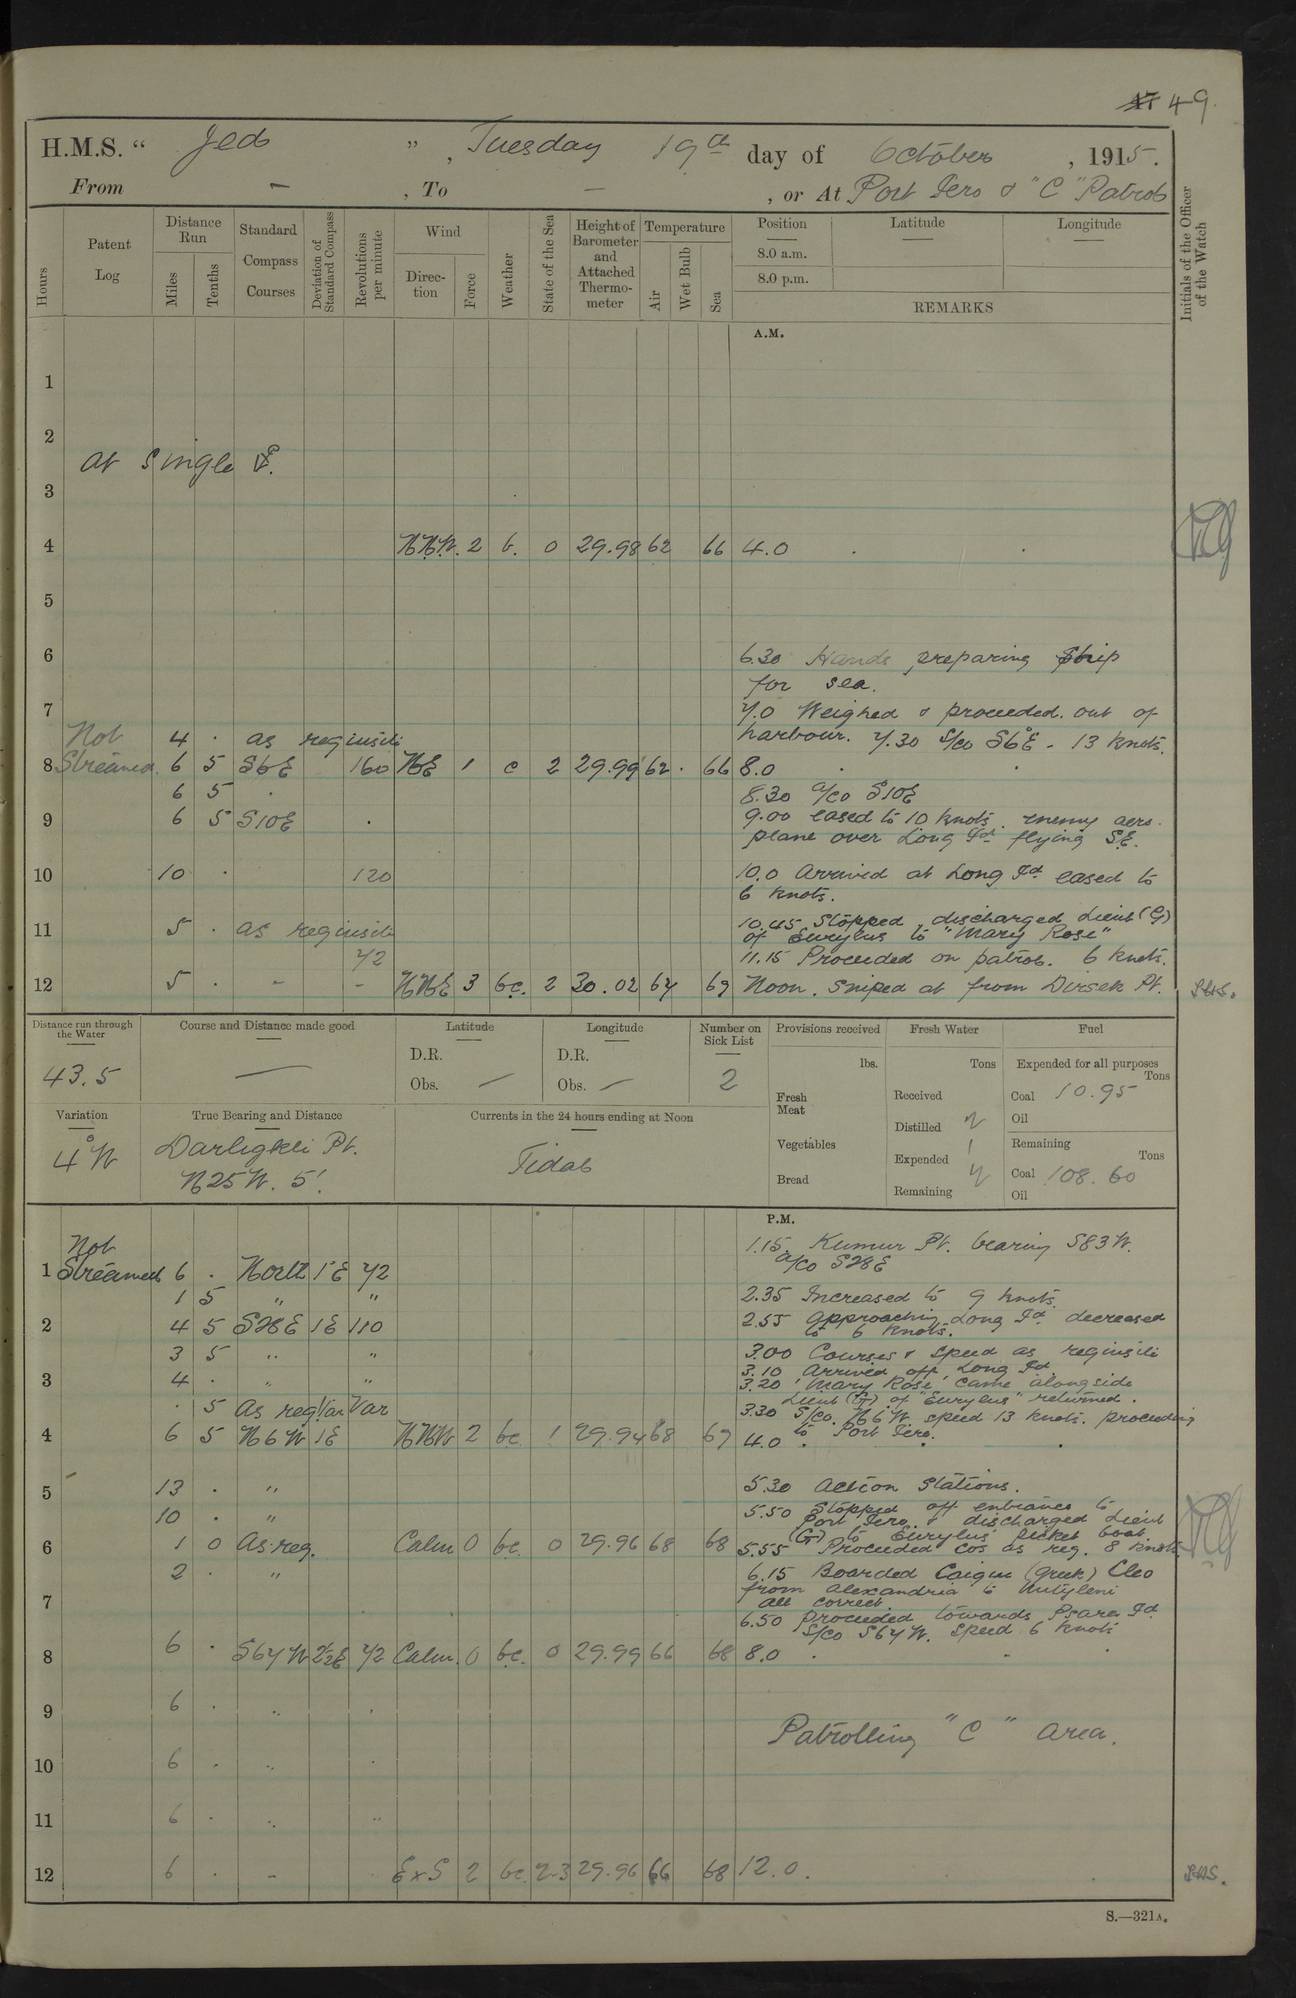 17 49.
H.M.S. “ Jed ” , Tuesday 19th day of October , 1915.
From - , To - , or At Port Iero & "C" Patrol
Hours Patent Log Distance Run Miles Tenths Standard Compass Courses Deviation of Standard Compass Revolutions per minute Wind Direction Force Weather State of the Sea Height of Barometer and Attached Thermometer Temperature Air Wet Bulb Sea Position Latitude Longitude
8.0 a.m.
8.0 p.m.
REMARKS
Initials of the Officer of the Watch
A.M.
1
2
at single ⚓.
3
4 NNW. 2 b. 0 29.98 62 66 4.0
5
6 6.30 Hands preparing ship
for sea.
7 7.0 Weighed & proceeded out of
Not 4 . as requisite harbour. 7.30 s/co S6°E - 13 knots.
8 Streamed. 6 5 S6E 160 NE 1 c 2 29.99 62 . 66 8.0
6 5 . 8.30 a/co S10E
9 6 5 S10E . 9.00 eased to 10 knots. enemy aero-
plane over Long Id flying SE.
10 10 . 120 10.0 Arrived at Long Id eased to
6 knots.
11 5 . as requisite 10.45 Stopped, discharged Lieut (G)
of Euryalus to "Mary Rose"
72 11.15 Proceeded on patrol. 6 knots.
12 5 . - - NNE 3 bc. 2 30.02 67 69 Noon. Sniped at from Dirsek Pt.
Distance run through the Water
43.5
Course and Distance made good
—
Latitude
D.R.
Obs. —
Longitude
D.R.
Obs. —
Number on Sick List
2
Provisions received
lbs.
Fresh Meat
Vegetables
Bread
Fresh Water
Tons
Received
Distilled 2
Expended 1
Remaining
Fuel
Expended for all purposes
Tons
Coal 10.95
Oil
Remaining
Tons
Coal 108.60
Oil
Variation
4°W
True Bearing and Distance
Darligkeli Pt.
N25W. 5'.
Currents in the 24 hours ending at Noon
Tidal
P.M.
Not 1.15 Kumur Pt. bearing S83W.
a/co S28E
1 Streamed 6 . North 1°E 72
1 5 " " 2.35 Increased to 9 knots.
2 4 5 S28E 1E 110 2.55 approaching Long Id decreased
to 6 knots.
3 5 " " 3.00 Courses & speed as requisite
3 4 . " " 3.10 Arrived off Long Id
3.20 'Mary Rose' came alongside
. 5 As req Var Var Lieut (G) of "Euryalus" returned.
3.30 S/co. N6W. speed 13 knots. proceeding
to Port Iero.
4 6 5 N6W 1E NNW 2 bc 1 29.94 68 69 4.0
5 13 . " 5.30 Action Stations.
10 . " 5.50 Stopped off entrance to
Port Iero & discharged Lieut
(G) to Euryalus' picket boat.
6 1 0 As req. Calm 0 bc. 0 29.96 68 68 5.55 Proceeded cos as req. 8 knots
2 . " 6.15 Boarded Caique (Greek) Cleo
from Alexandria to Mityleni
7 all correct.
6.50 Proceeded towards Psara Id
S/co S67W. Speed 6 knots
8 6 . S67W 2½E 72 Calm. 0 bc. 0 29.99 66 68 8.0
9 6 . " .
Patrolling "C" area.
10 6 . " .
11 6 . " "
12 6 . - ExS 2 bc. 2-3 29.96 66 68 12.0.
S.—321A.